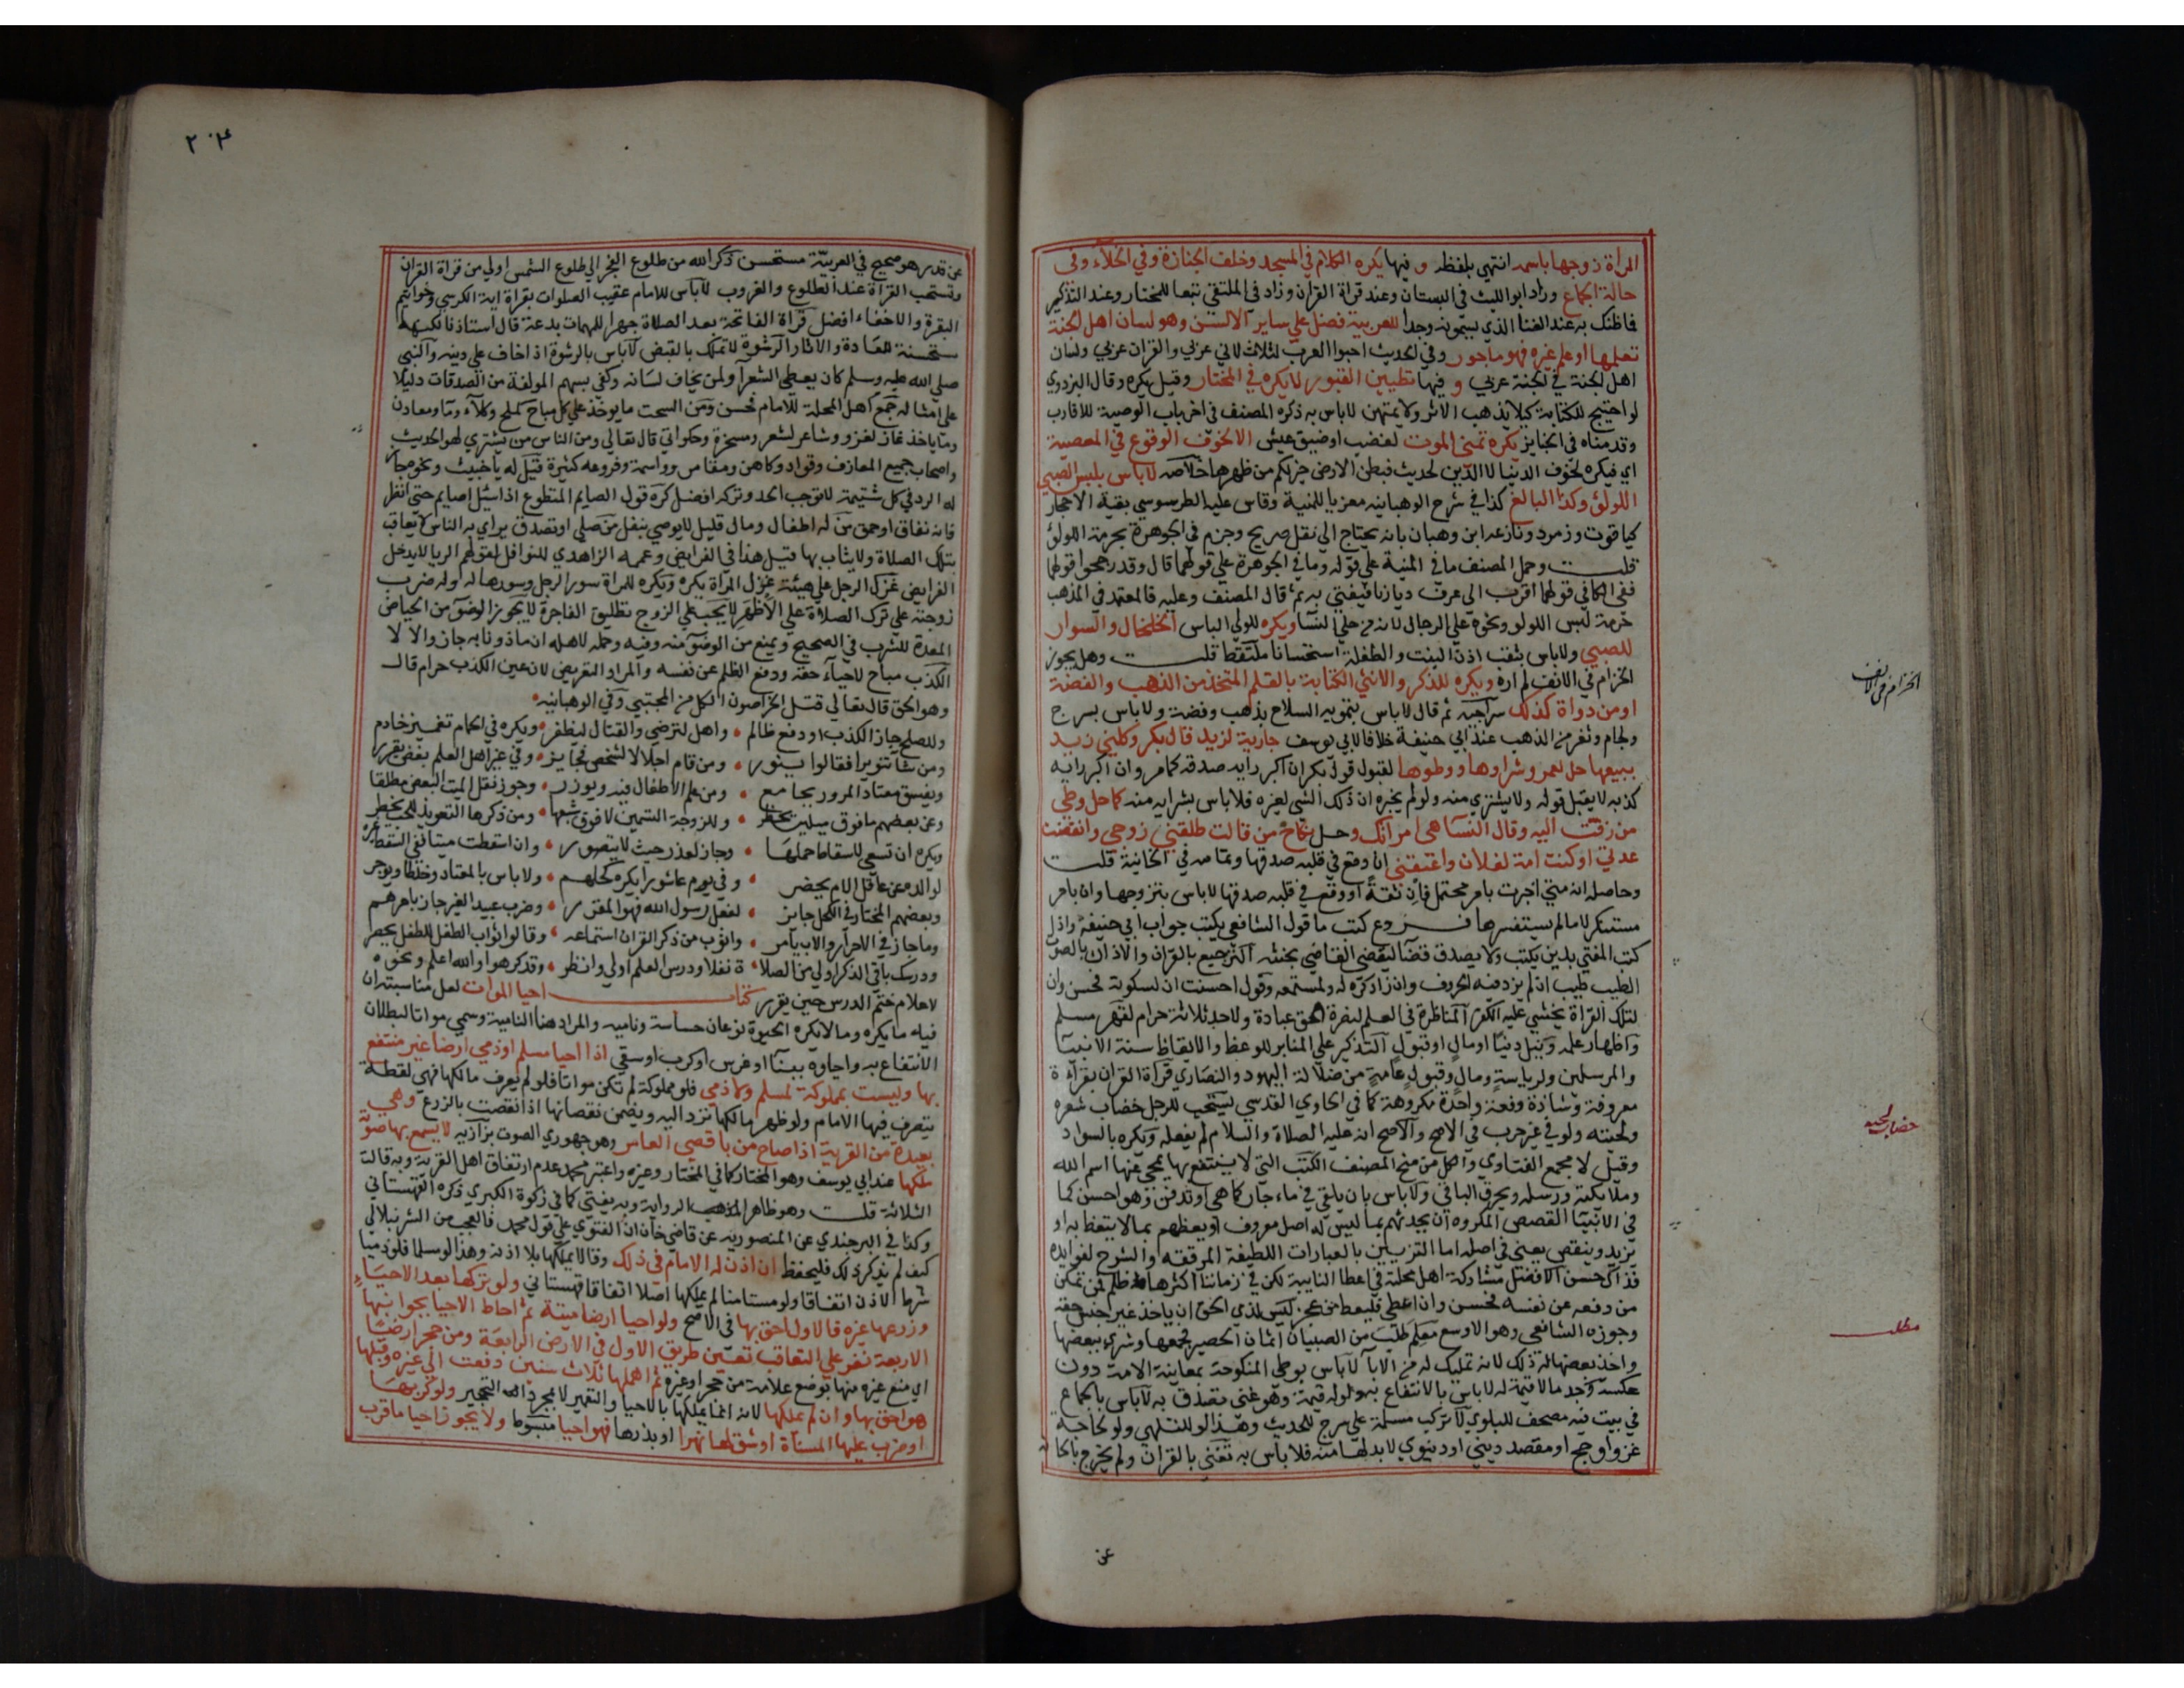 المرأة زوجها باسمه انتهي بلفظه وفيها يكره الكلام في المسجد وخلف الجنازة وفي الخلاء وفي
حالة الجماع وزاد ابو الليث في البستان وعند قراة القران وزاد في الملتقي تبعا للمختار وعند التذكير
فما ظنك به عند الغنا الذي يسمونه وجدا للعربية فضل علي ساير الالسن وهو لسان اهل الجنة
تعلمها او علم غيره فهو ماجور وفي الحديث احبوا العرب لثلاث لاني عربي والقران عربي ولسان
اهل الجنة في الجنة عربي وفيها تطيين القبور لا يكره في المختار وقيل يكره وقال البزدوي
لو احتيج للكتابة كيلا يذهب الاثر ولا يمتهن لاباس به ذكره المصنف في اخر باب الوصية للاقارب
وقدمناه في الجنايز يكره تمني الموت لغضب او ضيق عيش الا لخوف الوقوع في المعصية
اي فيكره لخوف الدنيا لا الدين لحديث فبطن الارض خير لكم من ظهرها خلاصه لاباس بلبس الصبي
اللولؤ وكذا البالغ كذا في شرح الوهبانيه معزيا للمنية وقاس عليه الطرسوسي بقية الاحجار
كياقوت وزمرد ونازعه ابن وهبان بانه يحتاج الي نقل صريح وجزم في الجوهرة بحرمة اللولؤ
قلت وحمل المصنف ما في المنية علي قوله وما في الجوهرة علي قولهما قال وقد رجحوا قولهما
ففي الكافي قولهما اقرب الي عرف ديارنا فيفتي به ثم قال المصنف وعليه فالمعتمد في المذهب
حرمة لبس اللولو ونحوه علي الرجال لانه من حلي النسا ويكره للولي الباس الخلخال والسوار
للصبي ولاباس بثقب اذن البنت والطفلة استحسانا ملتقط قلت وهل يجوز
الخزام في الانف لم اره ويكره للذكر والانثي الكتابة بالقلم المتخذ من الذهب والفضة
او من دواة كذلك سراجيه ثم قال لاباس بتمويه السلاح بذهب وفضة ولاباس بسرج
ولجام وثفر من الذهب عند ابي حنيفة خلافا لابي يوسف جارية لزيد قال بكر وكلني زيد
ببيعها حل لعمرو شراوها ووطوها لقبول قول بكر ان اكبر رايه صدقه كما مر وان اكبر رايه
كذبه لا يقبل قوله ولا يشتري منه ولو لم يخبره ان ذلك الشي لغيره فلا باس بشرايه منه كما حل وطي
من زفت اليه وقال النسا هي امراتك وحل نكاح من قالت طلقني زوجي وانقضت
عدتي او كنت امة لفلان واعتقني ان وقع في قلبه صدقها وتمامه في الخانية قلت
وحاصله انه متي اخبرت بامر محتمل فان ثقة او وقع في قلبه صدقها لاباس بتزوجها وان بامر
مستنكر لا ما لم يستفسرها فروع كتب ما قول الشافعي يكتب جواب ابي حنيفة واذا
كتب المفتي بدين يكتب ولا يصدق قضا ليقضي القاضي بحنثه الترجيع بالقران والاذان بالصوت
الطيب طيب ان لم يزد فيه الحروف وان زاد كره له ولمستمعه وقول احسنت ان لسكوته فحسن وان
لتلك القراة يخشي عليه الكفر المناظرة في العلم لنصرة الحق عبادة ولاحد ثلاثة حرام لقهر مسلم
واظهار علمه ونيل دنيا او مال او قبول التذكير علي المنابر للوعظ والاتعاظ سنة الانبيا
والمرسلين ولرياسة ومال وقبول عامة من ضلالة اليهود والنصاري قراة القران بقراءة
معروفة وشاذة دفعة واحدة مكروهة كما في الحاوي القدسي يستحب للرجل خضاب شعره
ولحيته ولو في غير حرب في الاصح والاصح انه عليه الصلاة والسلام لم يفعله ويكره بالسواد
وقيل لا مجمع الفتاوي والكل من منح المصنف الكتب التي لا ينتفع بها يمحي عنها اسم الله
وملايكته ورسله ويحرق الباقي ولاباس بان يلقي في ماء جار كما هي او تدفن وهو احسن كما
في الانبيا القصص المكروه ان يحدثهم بما ليس له اصل معروف او يعظهم بما لا يتعظ به او
يزيد وينقص يعني في اصله اما التزيين بالعبارات اللطيفة المرققة والشرح لفوايده
فذاك حسن الافضل مشاركة اهل محلته في اعطا النايبة لكن في زماننا اكثرها ظلم فمن تمكن
من دفعه عن نفسه فحسن وان اعطي فليعط من عجز ليس لذي الحق ان ياخذ غير جنس حقه
وجوزه الشافعي وهو الاوسع معلم طلب من الصبيان اثمان الحصير فجمعها وشري ببعضها
واخذ بعضها له ذلك لانه تمليك له من الابا لاباس بوطي المنكوحة بمعاينة الامة دون
عكسه وجد ما لا قيمة له لاباس بالانتفاع به ولو له قيمة وهو غني تصدق به لاباس بالجماع
في بيت فيه مصحف للبلوي لا تركب مسلمة علي سرج للحديث وهذا لو للتلهي ولو لحاجة
غزو او حج او مقصد ديني او دنيوي لابد لها منه فلا باس به تغني بالقران ولم يخرج بالحا
عن
الخزام في الانف
خضاب لحيه
مطلب
٢٠٣
عن قدر هو صحيح في العربية مستحسن ذكر الله من طلوع الفجر الي طلوع الشمس اولي من قراة القران
وتستحب القراة عند الطلوع والغروب لاباس للامام عقيب الصلوات بقراة اية الكرسي وخواتيم
البقرة والاخفاء افضل قراة الفاتحة بعد الصلاة جهرا للمهمات بدعة قال استاذنا لكنها
مستحسنة للعادة والاثار الرشوة لا تملك بالقبض لاباس بالرشوة اذا خاف علي دينه والنبي
صلي الله عليه وسلم كان يعطي الشعرا ولمن يخاف لسانه وكفي بسهم المولفة من الصدقات دليلا
علي امثاله جمع اهل المحلة للامام فحسن ومن السحت ما يوخذ علي كل مباح كملح وكلاء وما ومعادن
وما ياخذ غاز لغزو وشاعر لشعر ومسخرة وحكواتي قال تعالي ومن الناس من يشتري لهو الحديث
واصحاب جميع المعازف وقواد وكاهن ومقامر وواشمة وفروعه كثيرة قيل له ياخبيث ونحوه جاز
له الرد في كل شتيمة لا توجب الحد وتركه افضل كره قول الصايم المتطوع اذا سيل اصايم حتي انظر
فانه نفاق او حمق من له اطفال ومال قليل لا يوصي بنفل من صلي او تصدق يراي به الناس لا يعاقب
بتلك الصلاة ولا يثاب بها قيل هذا في الفرايض وعممه الزاهدي للنوافل لقولهم الريا لا يدخل
الفرايض غزل الرجل علي هيئة غزل المرأة يكره ويكره للمراة سور الرجل وسورها له وله ضرب
زوجته علي ترك الصلاة علي الاظهر لا يجب علي الزوج تطليق الفاجرة لا يجوز الوضو من الحياض
المعدة للشرب في الصحيح ويمنع من الوضو منه وفيه وحمله لاهله ان ماذونا به جاز والا لا
الكذب مباح لاحياء حقه ودفع الظلم عن نفسه والمراد التعريض لان عين الكذب حرام قال
وهو الحق قال تعالي قتل الخراصون الكل من المجتبي وفي الوهبانيه
وللصلح جاز الكذب او دفع ظالم • واهل لترضي والقتال ليظفر • ويكره في الحمام تغميز خادم
ومن شا تنويرا فقالوا ينور • ومن قام اجلالا لشخص فجايز • وفي غير اهل العلم بعض يقرر
ويفسق معتاد المرور بجامع • ومن علم الاطفال فيه ويوزر • وجوز نقل الميت البعض مطلقا
وعن بعضهم ما فوق ميلين يحظر • وللزوجة التسمين لا فوق شبعها • ومن ذكرها التعويذ للحب تحظر
ويكره ان تسعي لاسقاط حملها • وجاز لعذر حيث لا يتصور • وان اسقطت ميتا ففي السقط غره
لوالده من عاقل الام يحضر • وفي يوم عاشورا يكره كحلهم • ولاباس بالمعتاد وخلطا ويوجر
وبعضهم المختار في الكحل جايز • لفعل رسول الله فهو المقرر • وضرب عبيد الغير جاز بامرهم
وما جاز في الاحرار والاب يامر • واثوب من ذكر القران استماعه • وقالوا ثواب الطفل للطفل يحصر
ودرسك باقي الذكر اولي من الصلا • ة نفلا ودرس العلم اولي وانظر • وقد كرهوا والله اعلم ونحوه
لاعلام ختم الدرس حين يقرر كتاب احيا الموات لعل مناسبته ان
فيه ما يكره وما لا يكره الحيوة نوعان حساسة ونامية والمراد هنا النامية وسمي مواتا لبطلان
الانتفاع به واحياوه ببنا او غرس او كرب او سقي اذا احيا مسلم او ذمي ارضا غير منتفع
بها وليست بمملوكة لمسلم ولا ذمي فلو مملوكة لم تكن مواتا فلو لم يعرف مالكها فهي لقطة
يتصرف فيها الامام ولو ظهر مالكها ترد اليه ويضمن نقصانها اذا نقصت بالزرع وهي
بعيدة من القرية اذا صاح من باقصي العامر وهو جهوري الصوت بزازيه لا يسمع بها صوته
ملكها عند ابي يوسف وهو المختار كما في المختار وغيره واعتبر محمد عدم ارتفاق اهل القرية وبه قالت
الثلاثة قلت وهو ظاهر الرواية وبه يفتي كما في زكوة الكبري ذكره القهستاني
وكذا في البرجندي عن المنصوريه عن قاضي خان ان الفتوي علي قول محمد فالعجب من الشرنبلالي
كيف لم يذكر ذلك فليحفظ ان اذن له الامام في ذلك وقالا يملكها بلا اذنه وهذا لو مسلما فلو ذميا
شرط الاذن اتفاقا ولو مستامنا لم يملكها اصلا اتفاقا قهستاني ولو تركها بعد الاحياء
وزرعها غيره فالاول احق بها في الاصح ولو احيا ارضا ميتة ثم احاط الاحيا بجوانبها
الاربعة نفر علي التعاقب تعين طريق الاول في الارض الرابعة ومن حجر ارضا
اي منع غيره منها بوضع علامة من حجر او غيره ثم اهملها ثلاث سنين دفعت الي غيره وقبلها
هو احق بها وان لم يملكها لانه انما يملكها بالاحيا والتعمير لا بمجرد التحجير ولو كربها
او ضرب عليها المسناة او شق لها نهرا او بذرها فهو احيا مبسوط ولا يجوز احيا ما قرب